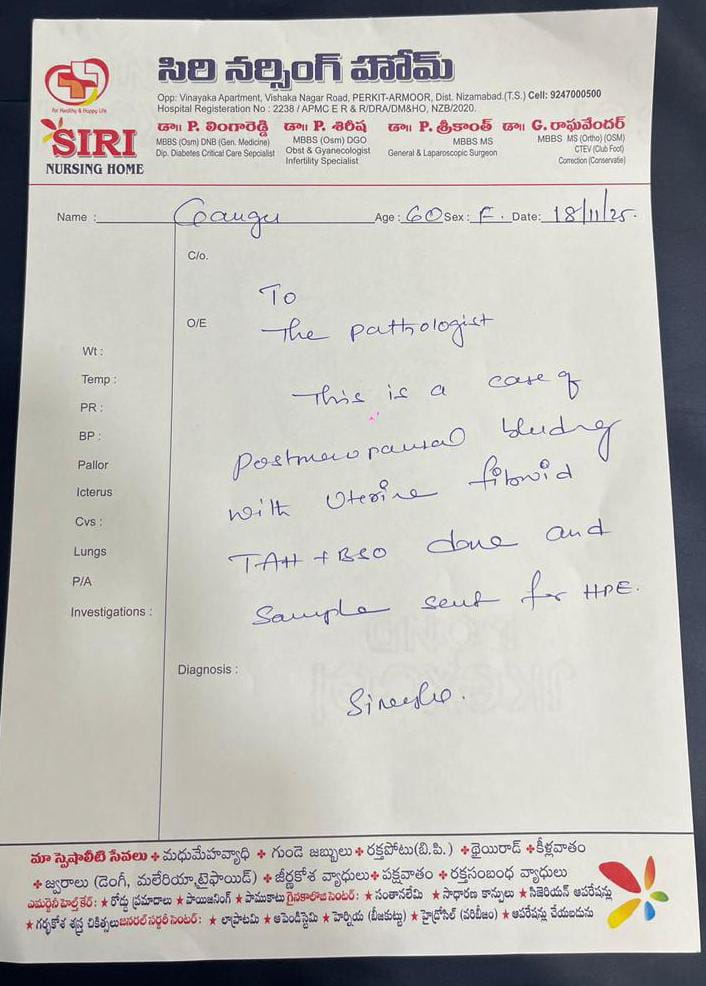 సిరి నర్సింగ్ హోమ్
For Healthy & Happy Life
SIRI
NURSING HOME
Opp: Vinayaka Apartment, Vishaka Nagar Road, PERKIT-ARMOOR, Dist. Nizamabad.(T.S.) Cell: 9247000500
Hospital Registeration No : 2238 / APMC E R & R/DRA/DM&HO, NZB/2020.
డా॥ P. లింగారెడ్డి
MBBS (Osm) DNB (Gen. Medicine)
Dip. Diabetes Critical Care Sepcialist
డా॥ P. శిరీష
MBBS (Osm) DGO
Obst & Gyanecologist
Infertility Specialist
డా॥ P. శ్రీకాంత్
MBBS MS
General & Laparoscopic Surgeon
డా॥ G. రాఘవేందర్
MBBS MS (Ortho) (OSM)
CTEV (Club Foot)
Correction (Conservatie)
Name : Gangu Age : 60 Sex : F. Date: 18/11/25.
C/o.
To
O/E
The pathologist
Wt :
Temp :
This is a case of
PR :
BP :
postmenopausal bleeding
Pallor
Icterus
with Uterine fibroid
Cvs :
Lungs
TAH + BSO done and
P/A
Investigations :
Sample sent for HPE.
Diagnosis :
మా స్పెషాలిటీ సేవలు + మధుమేహవ్యాధి + గుండె జబ్బులు + రక్తపోటు(బి.పి.) + థైయిరాడ్ + కీళ్లవాతం
+ జ్వరాలు (డెంగీ, మలేరియా,టైఫాయిడ్) + జీర్ణకోశ వ్యాధులు + పక్షవాతం + రక్తసంబంధ వ్యాధులు
ఎమర్జెన్సి హెల్త్ కేర్: ★ రోడ్డు ప్రమాదాలు ★ పాయిజనింగ్ ★ పాముకాటు గైనకాలొజి సెంటర్: ★ సంతానలేమి ★ సాధారణ కాన్పులు ★ సిజెరియన్ ఆపరేషన్లు
★ గర్భకోశ శస్త్ర చికిత్సలు జనరల్ సర్జరీ సెంటర్: ★ లాప్రొటమి ★ అపెండిస్టెమి ★ హెర్నియ (బీజకుట్టు) ★ హైడ్రోసిల్ (వరిబీజం) ★ ఆపరేషన్లు చేయబడును